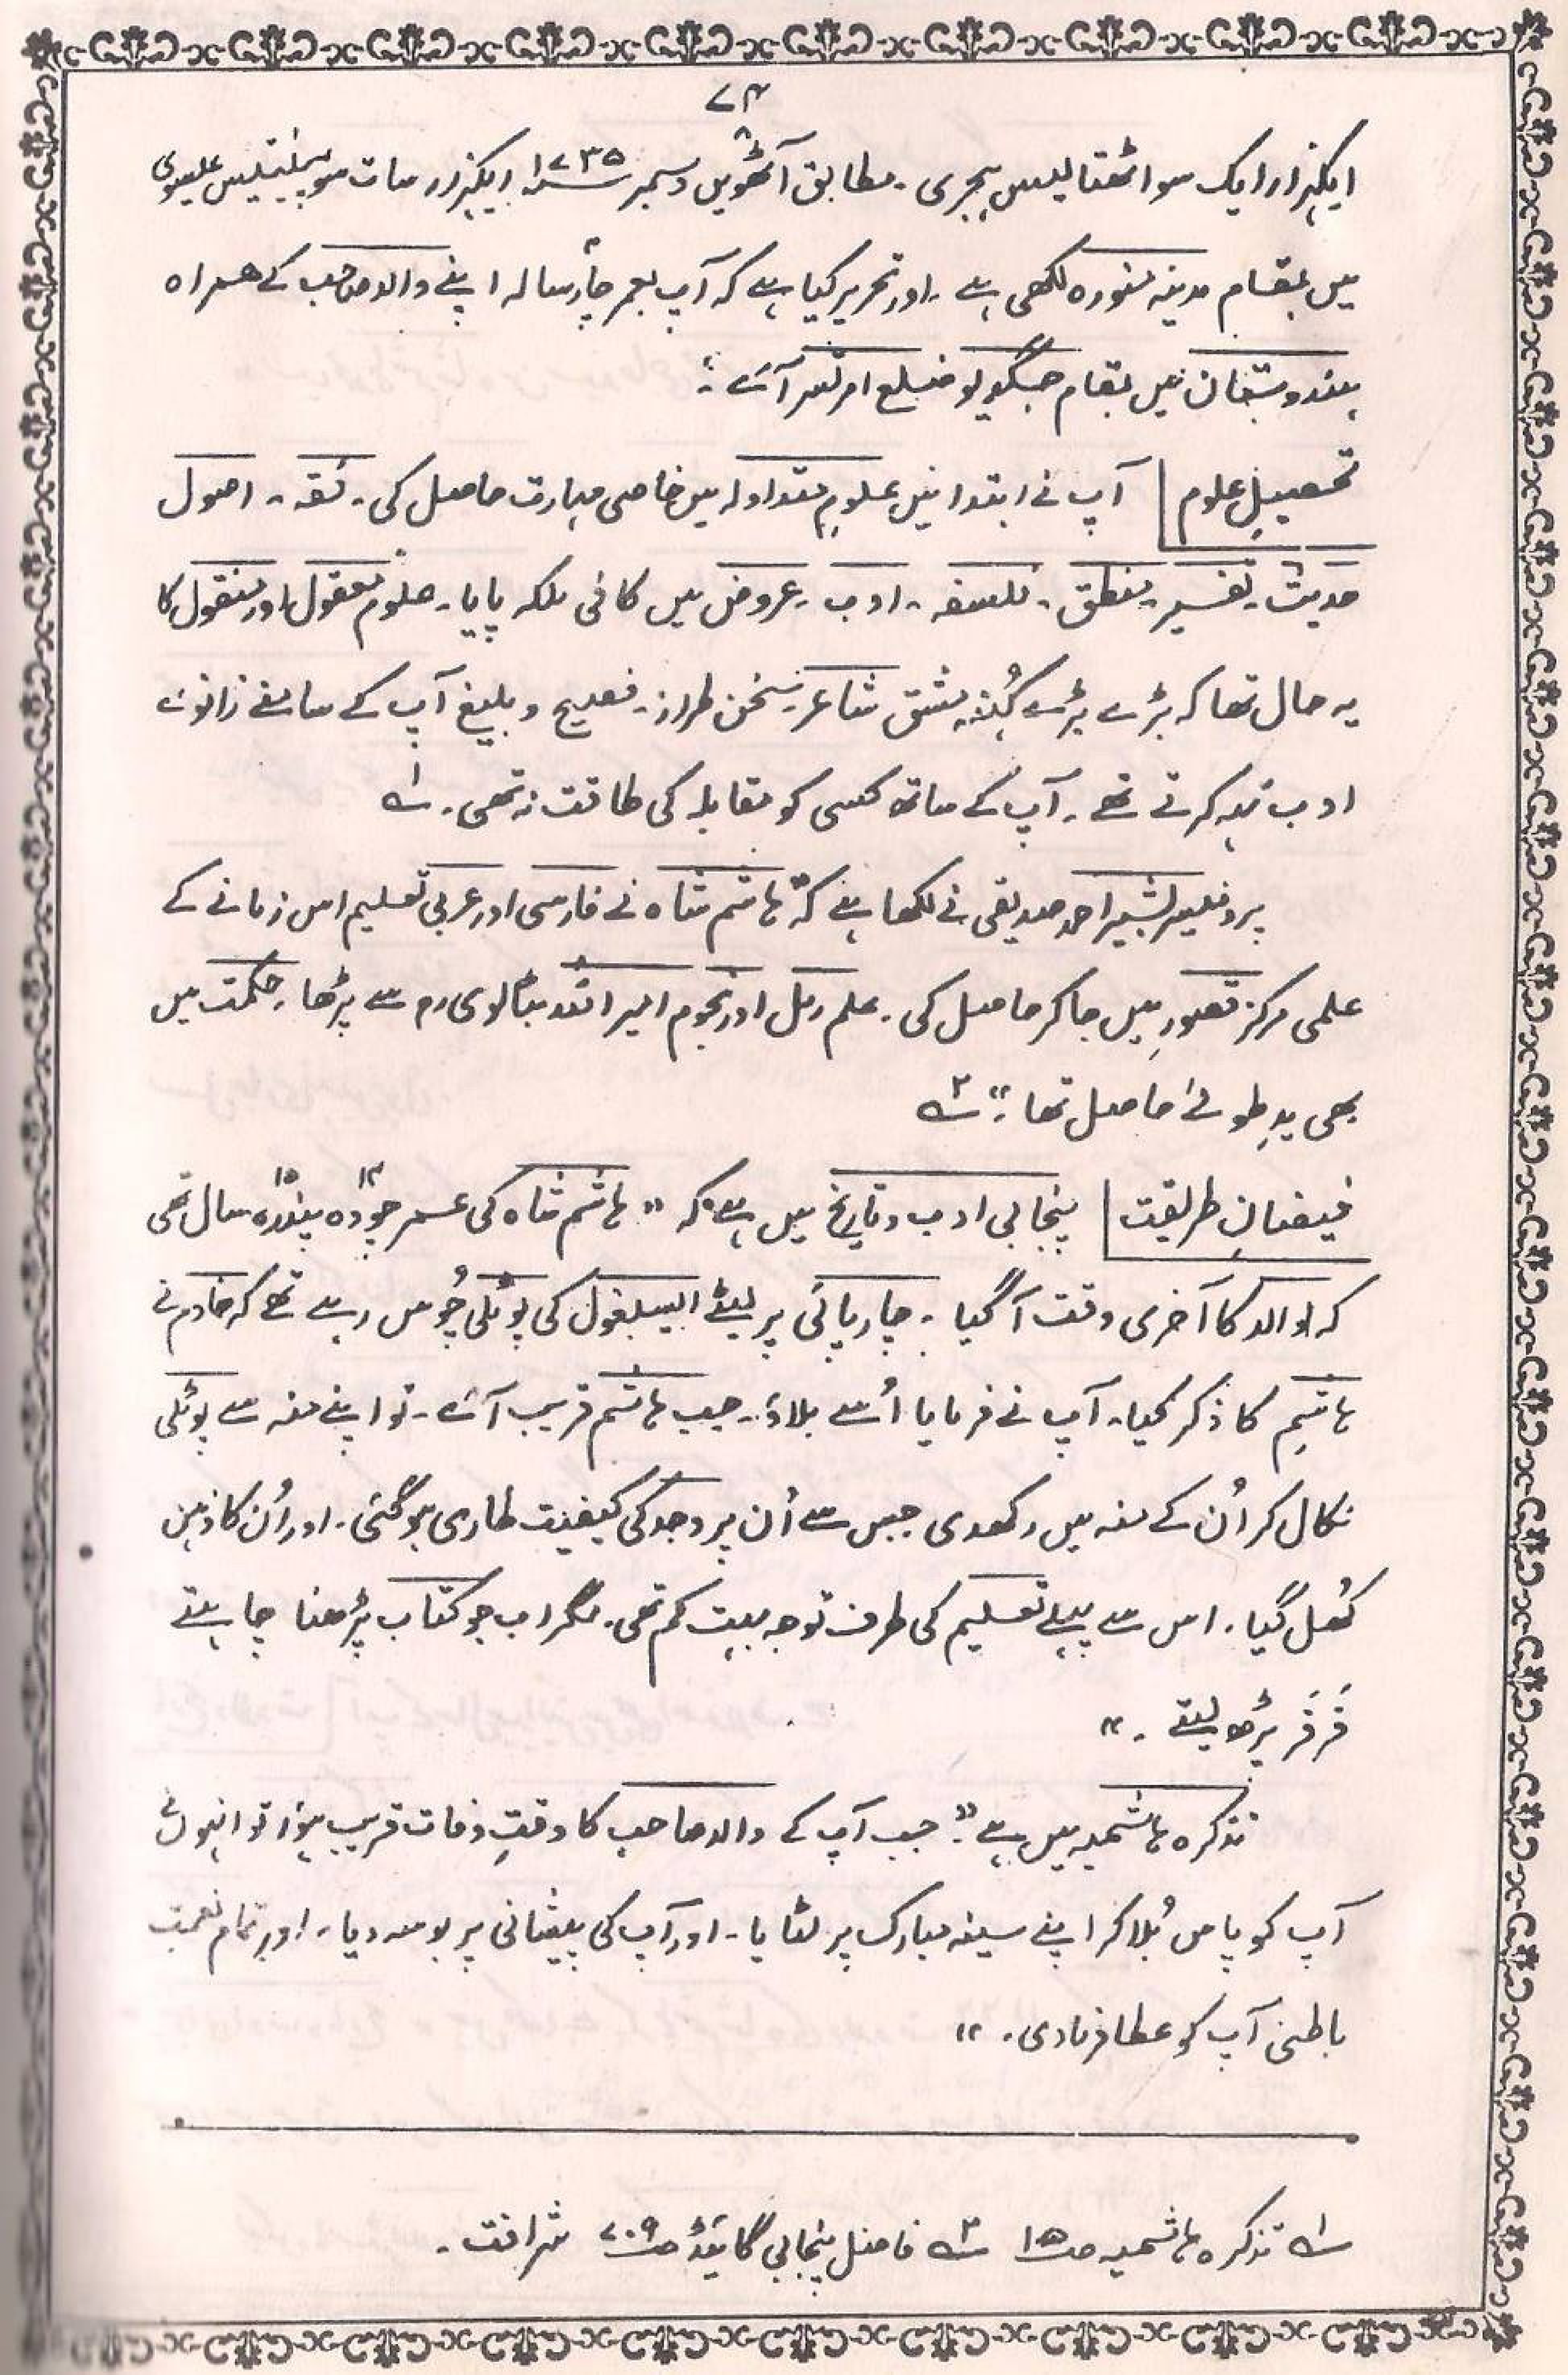 ۷۴
ایکہزار ایک سو اٹھتالیس ہجری ۔ مطابق آٹھویں ۸ دسمبر ۱۷۳۵؁ ایکہزار سات سو پینتیس عیسوی
میں بمقام مدینہ منورہ لکھی ہے ۔ اور تحریر کیا ہے کہ آپ بعمر چار ۴ سالہ اپنے والد صاحب کے ہمراہ
ہندوستان میں بمقام جگدیو ضلع امرتسر آئے ۔
تحصیلِ علوم آپ نے ابتدا میں علومِ متداولہ میں خاصی مہارت حاصل کی ۔ فقہ ۔ اصول
حدیث ۔ تفسیر ۔ منطق ۔ فلسفہ ۔ ادب ۔ عروض میں کافی ملکہ پایا ۔ علوم معقول اور منقول کا
یہ حال تھا کہ بڑے بڑے کُہنہ مشق شاعر ۔ سخن طراز ۔ فصیح و بلیغ آپ کے سامنے زانوئے
ادب تہہ کرتے تھے ۔ آپ کے ساتھ کسی کو مقابلہ کی طاقت نہ تھی ۔ ؎۱
پروفیسر بشیر احمد صدیقی نے لکھا ہے کہ "ہاشم شاہ نے فارسی اور عربی تعلیم اس زمانے کے
علمی مرکز قصور میں جا کر حاصل کی ۔ علم رمل اور نجوم امیر اللہ بٹالوی رم سے پڑھا ۔ حکمت میں
بھی یدِ طولےٰ حاصل تھا ۔" ؎۲
فیضانِ طریقت پنجابی ادب و تاریخ میں ہے کہ "ہاشم شاہ کی عمر چودہ ۱۴ پندرہ ۱۵ سال تھی
کہ والد کا آخری وقت آگیا ۔ چارپائی پر لیٹے اسپغول کی پوٹلی چُوس رہے تھے کہ خادم نے
ہاشم کا ذکر کیا ۔ آپ نے فرمایا اُسے بلاؤ ۔ جب ہاشم قریب آئے ۔ تو اپنے منہ سے پوٹلی
نکال کر اُن کے منہ میں رکھدی جس سے اُن پر وجد کی کیفیت طاری ہو گئی ۔ اور اُن کا ذہن
کُھل گیا ۔ اس سے پہلے تعلیم کی طرف توجہ بہت کم تھی ۔ مگر اب جو کتاب پڑھنا چاہتے
فَرفَر پڑھ لیتے ۔"
تذکرہ ہاشمیہ میں ہے ۔ "جب آپ کے والد صاحب کا وقتِ وفات قریب ہؤا تو انہوں نے
آپ کو پاس بُلا کر اپنے سینہ مبارک پر لٹایا ۔ اور آپ کی پیشانی پر بوسہ دیا ۔ اور تمام نعمت
باطنی آپ کو عطا فرمادی ۔"
؎۱ تذکرہ ہاشمیہ ص۱۵ ؎۲ فاضل پنجابی گائیڈ ص۷۰۹ شرافت ۔